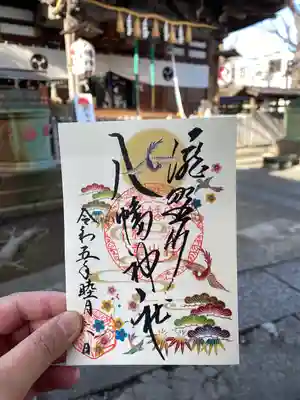 滝野川
八幡神社
令和五年睦月一日